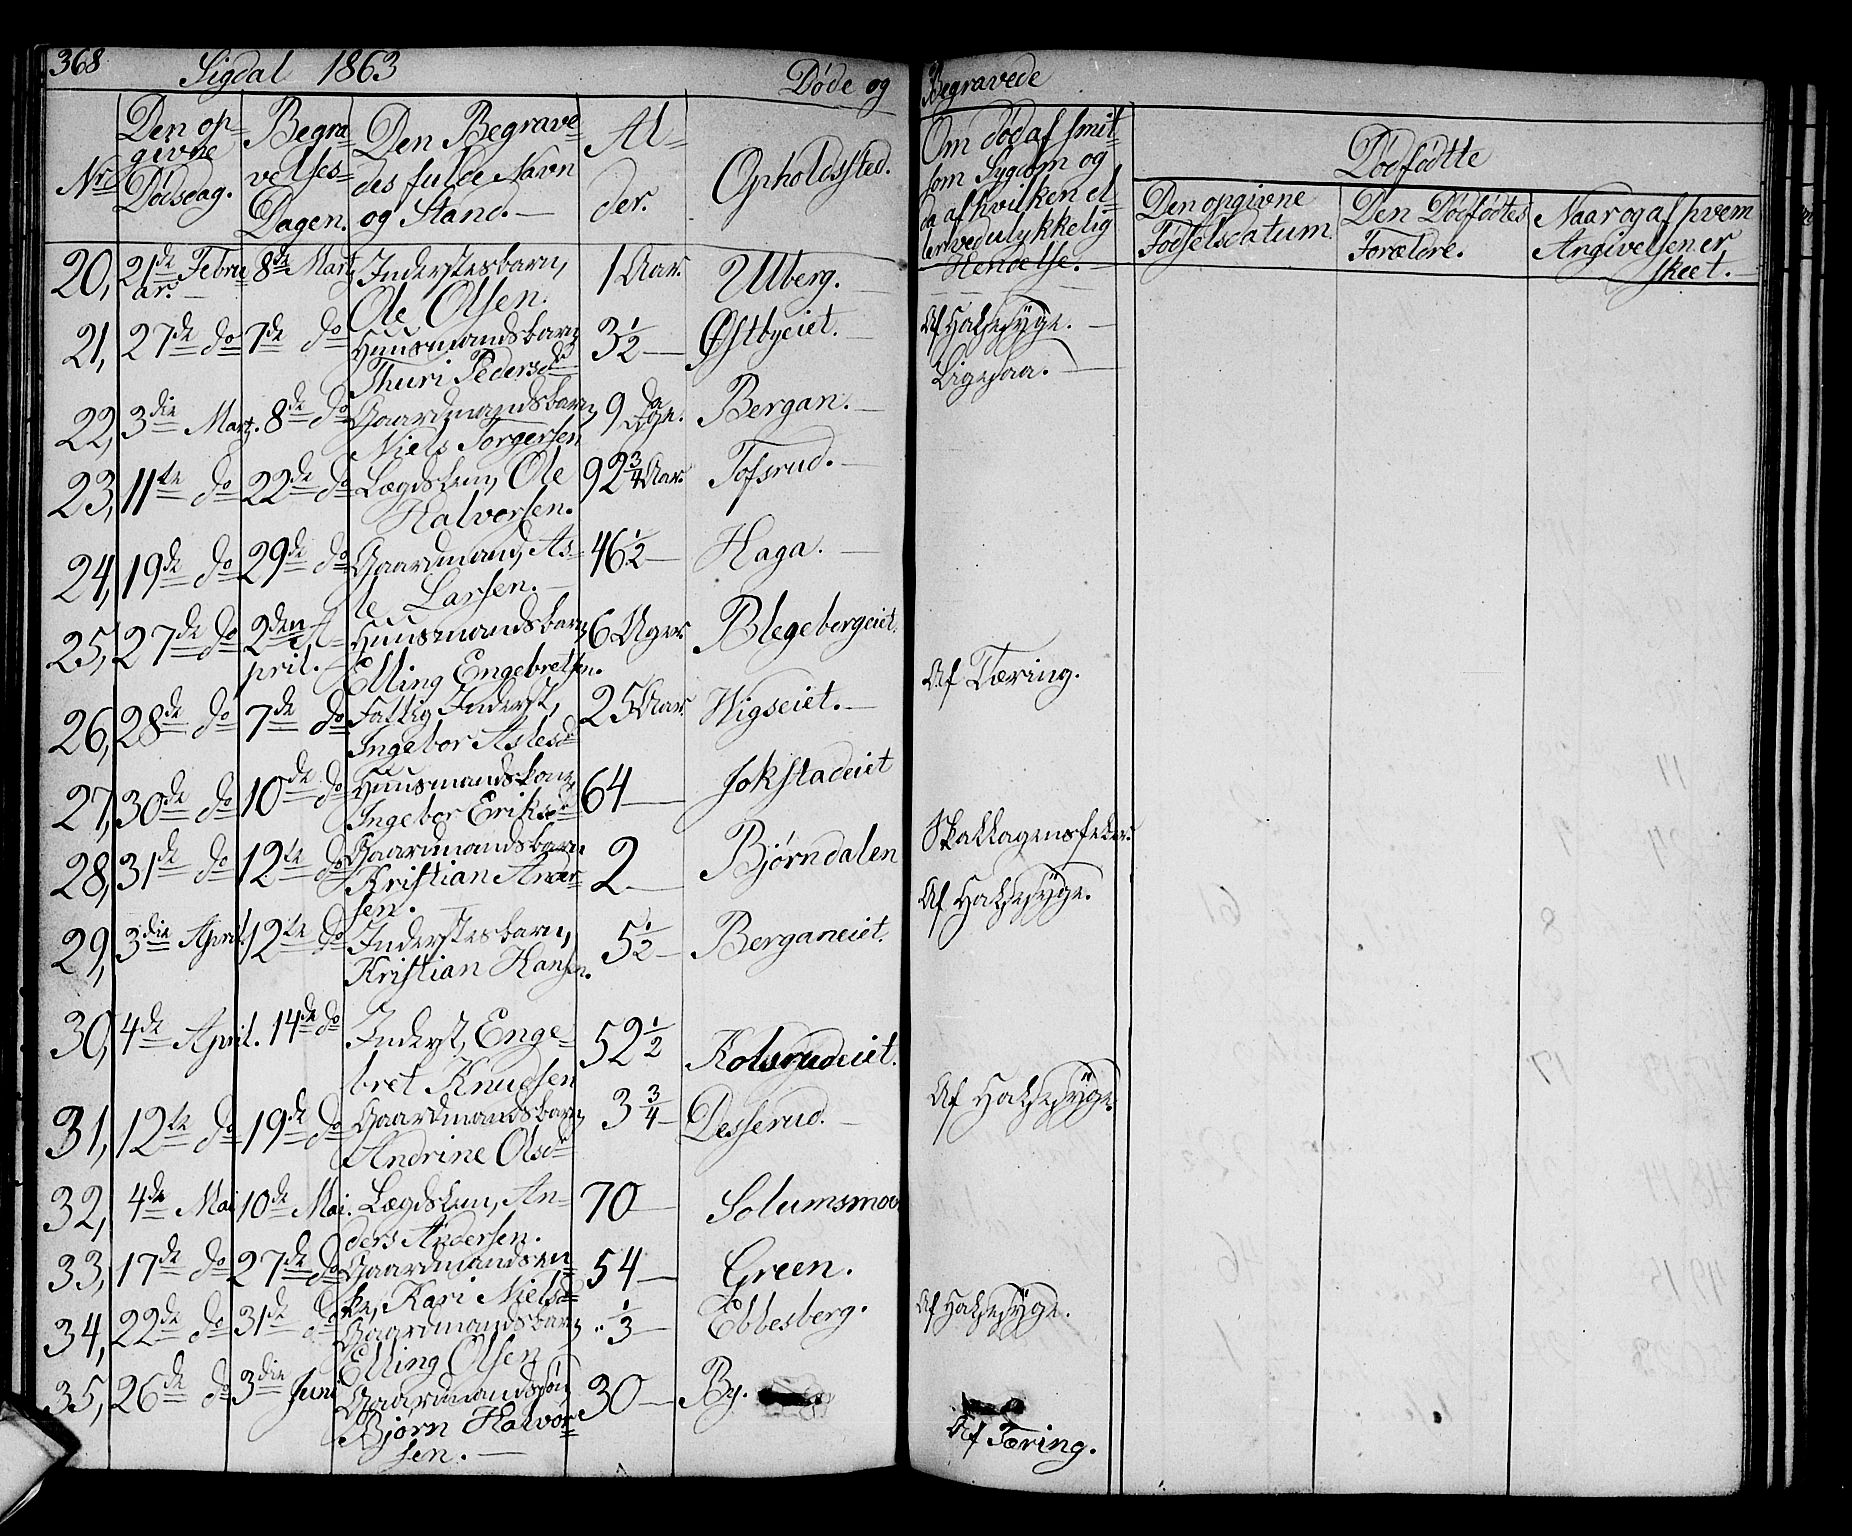 368 Sigdal 1863 Døde og Begravede
Nr. Den opgivne Dødsdag. Begravelses-Dagen. Den Begravedes fulde Navn og Stand. Alder. Opholdssted. Om død af smitsom Sygdom og da af hvilken eller ved ulykkelig Hendelse.
Dødfødte
Den opgivne Fødselsdatum. Den Dødfødtes Forældre. Naar og af hvem Angivelsen er skeet.
20, 21de Februar. 8de Mart, Inderstesbarn, Ole Olsen. 1 Aar. Ulberg. Af Halssyge.
21, 27de do 7de do Huusmandsbarn, Thuri Pedersd 3½ Østbyeiet. Ligesaa.
22, 3die Mart. 8de do Gaardmandsbarn, Niels Torgersen 9 Dage. Bergan.
23, 11te do 22de do Lægdslem, Ole Halvorsen. 92¾ Aar. Tofsrud.
24, 19de do 29de do Gaardmand, Asle Larsen. 46½ Haga.
25, 27de do 2den April. Huusmandsbarn, Elling Engebretsen. 6 Uger. Blegebergeiet.
26, 28de do 7de do Fattig Inderst, Ingebor Aslesd 25 Aar. Higseiet. Af Tæring.
27, 30de do 10de do Huusmandskone, Ingebor Eriksd 64 Jokstadeiet
28, 31de do 12te do Gaardmandsbarn Kristian Andersen. 2 Bjørndalen Skarlagensfeber.
29, 3die April. 12te do Inderstesbarn, Kristian Hansen. 5½ Berganeiet. Af Halssyge.
30, 4de April. 14de do Inderst, Engebret Knudsen 52½ Kolsrudeiet.
31, 12te do 19de do Gaardmandsbarn, Andrine Olsdr 3¾ Desserud. Af Halssyge.
32, 4de Mai 10de Mai. Lægdslem, Anders Andersen. 70 Solumsmoen
33, 17de do 27de do Gaardmandsenke, Kari Nielsd 54 Green.
34, 22de do 31de do Gaardmandsbarn, Elling Olsen ⅓ Ebbesberg. Af Halssyge.
35, 26de do 3die Juni Gaardmandssøn, Bjørn Halvorsen. 30 By. Af Tæring.